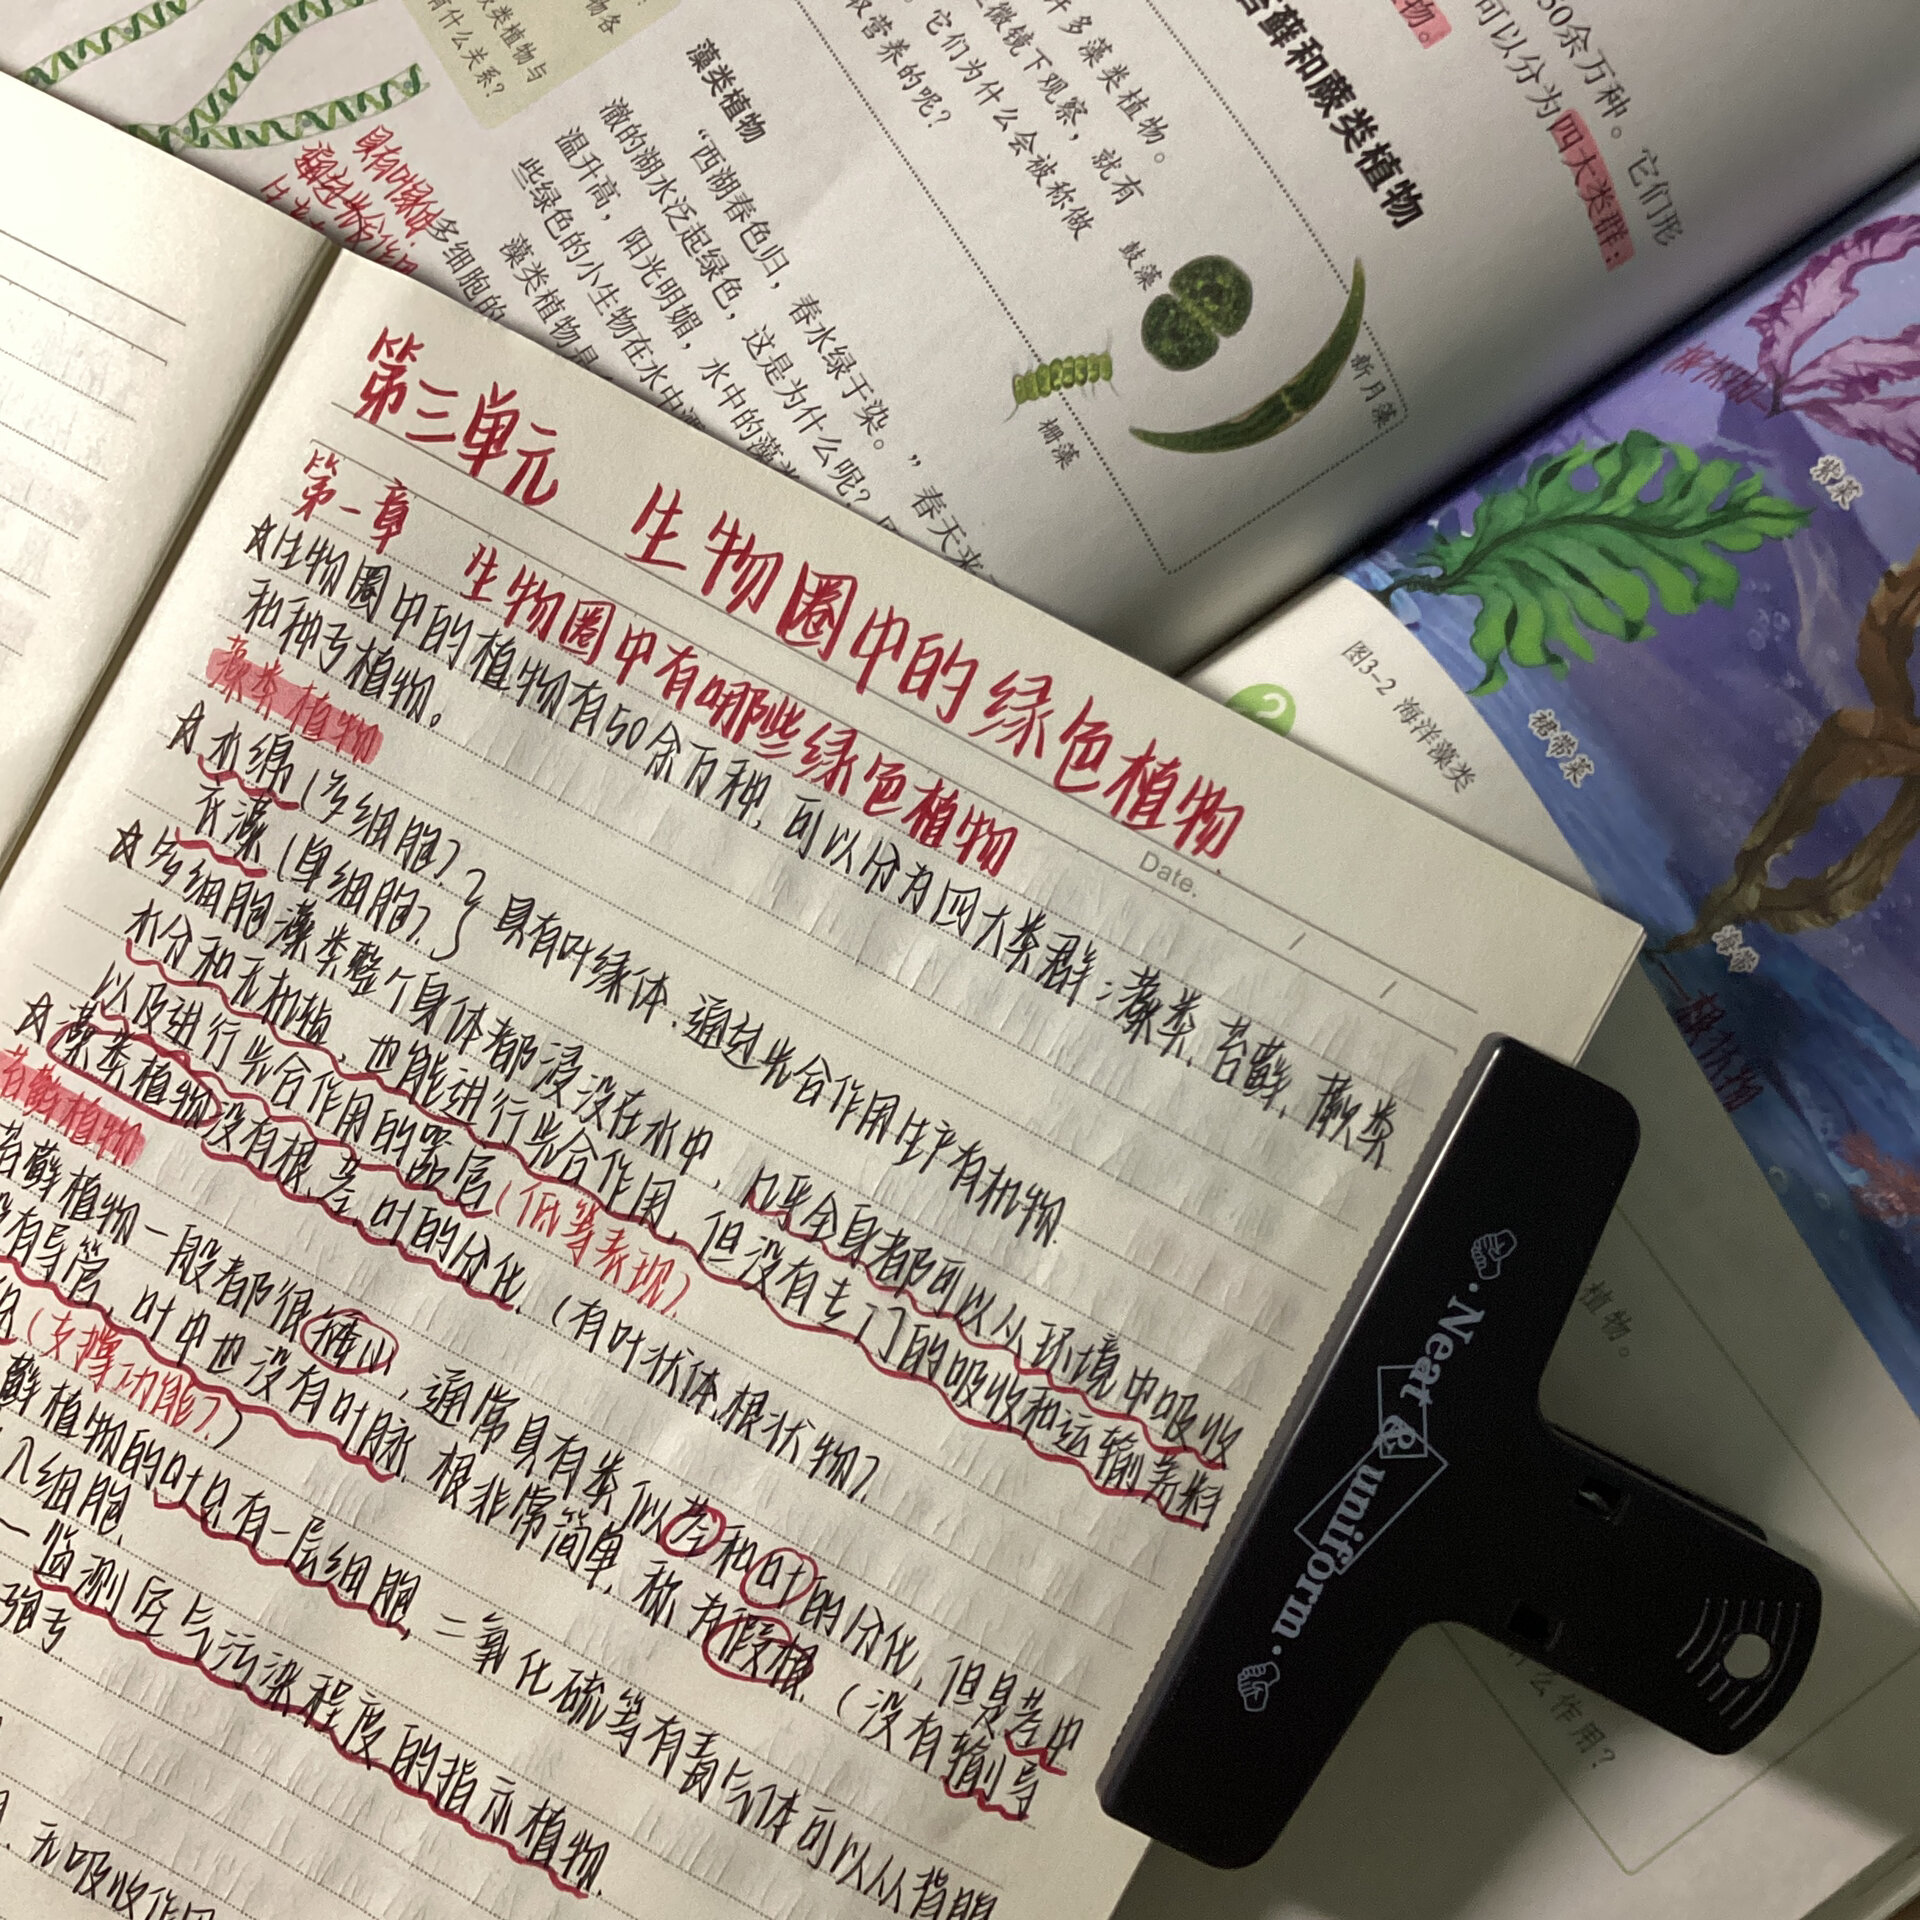 第三单元 生物圈中的绿色植物
第一章 生物圈中有哪些绿色植物
Date.
☆生物圈中的植物有50余万种,可以分为四大类群:藻类,苔藓,蕨类
和种子植物。
藻类植物
☆水绵(多细胞)
衣藻(单细胞)} 具有叶绿体.通过光合作用生产有机物.
☆多细胞藻类整个身体都浸没在水中,几乎全身都可以从环境中吸收
水分和无机盐,也能进行光合作用,但没有专门的吸收和运输养料
以及进行光合作用的器官(低等表现).
☆藻类植物没有根.茎.叶的分化.(有叶状体.根状物)
苔藓植物
苔藓植物一般都很矮小,通常具有类似茎和叶的分化,但是茎中
没有导管,叶中也没有叶脉,根非常简单,称为假根.(没有输导
(支撑功能))
藓植物的叶只有一层细胞,二氧化硫等有毒气体可以从背腹
入细胞.
监测空气污染程度的指示植物.
无吸收作用
50余万种。它们形
可以分为四大类群:
物。
苔藓和蕨类植物
许多藻类植物。
显微镜下观察,就有
。它们为什么会被称做
营养的呢?
鼓藻
新月藻
栅藻
物各
类植物与
有什么关系?
藻类植物
“西湖春色归,春水绿于染。”春天来
澈的湖水泛起绿色,这是为什么呢?
温升高,阳光明媚,水中的藻
些绿色的小生物在水中
藻类植物是
多细胞的
具有叶绿体.
通过光合作用
紫菜
裙带菜
海带
图3-2 海洋藻类
植物。
么作用?
·Neat & uniform·